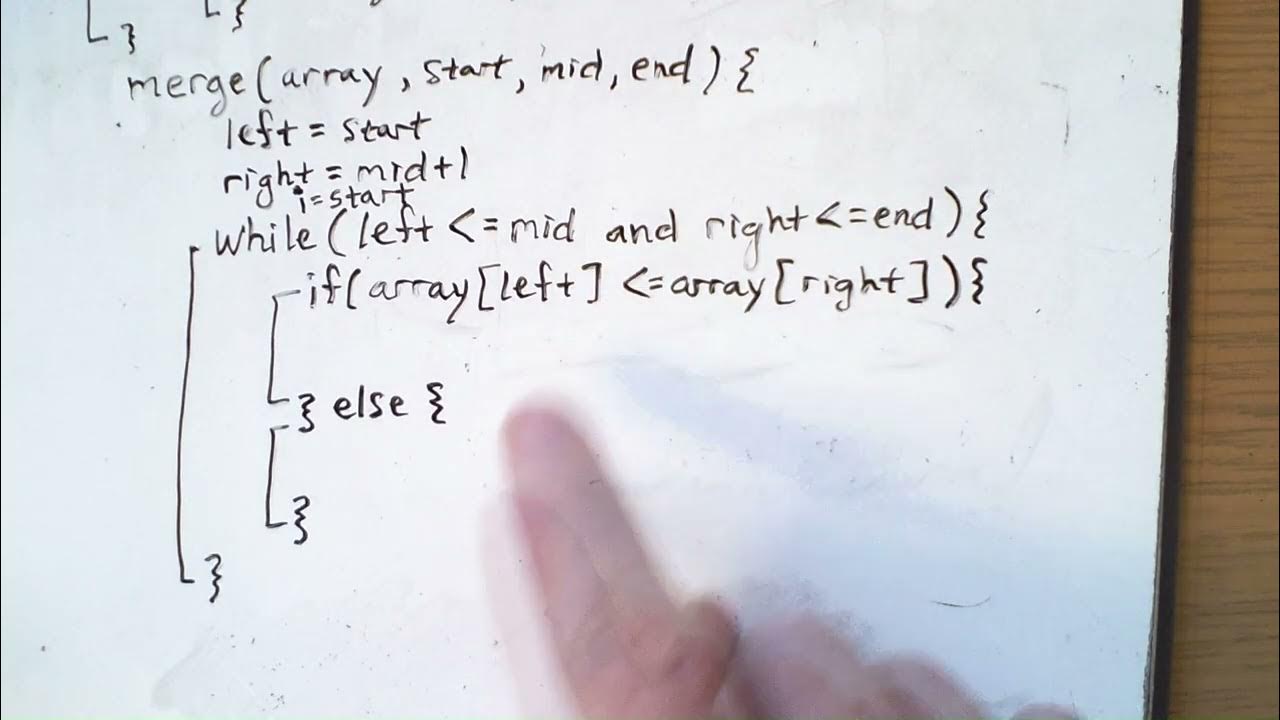 } }
merge(array, start, mid, end){
left = start
right = mid+1
i=start
while(left <= mid and right <= end){
if(array[left] <= array[right]){
} else {
}
}